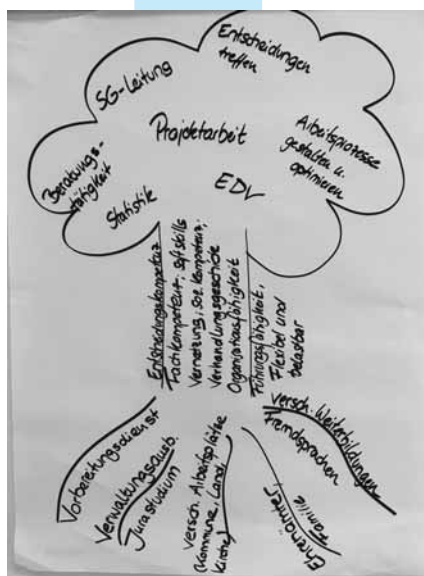 Entscheidungen
treffen
SG-Leitung
Projektarbeit
Arbeitsprozesse
gestalten u.
optimieren
Beratungs-
tätigkeit
EDV
Statistik
Entscheidungskompetenz
Fachkompetenz, soft skills
Vernetzung, soz. Kompetenz,
Verhandlungsgeschick
Organisationsfähigkeit
Führungsfähigkeit,
Flexibel und
belastbar
Vorbereitungsdienst
Verwaltungsausb.
Jurastudium
versch. Arbeitsplätze
(Kommune, Land,
Kirche)
Ehrenämter,
Familie
versch. Weiterbildungen
Fremdsprachen